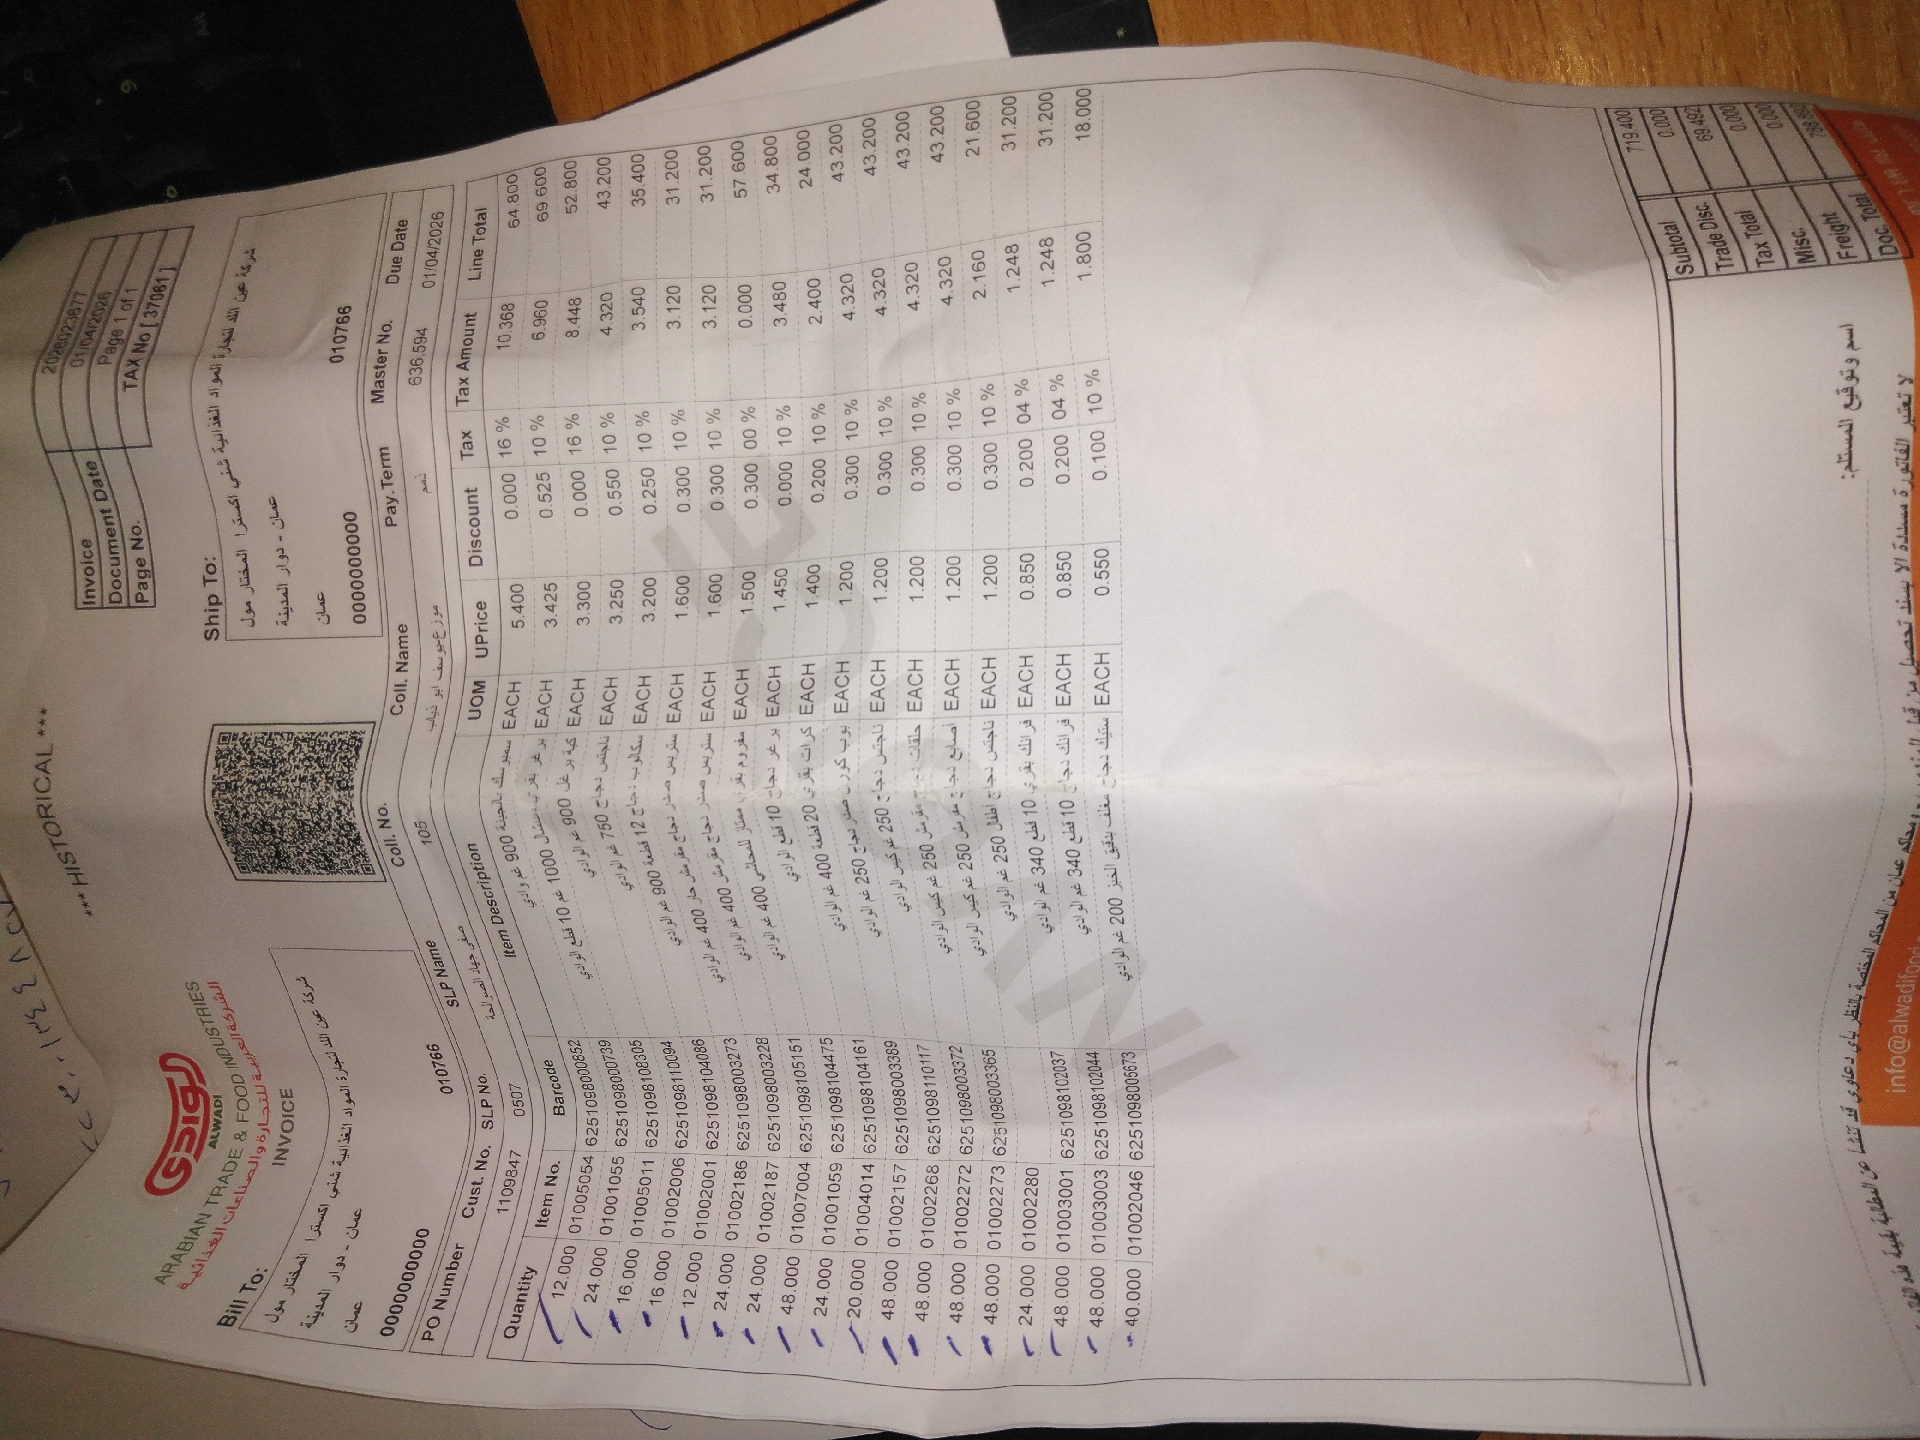 *** HISTORICAL ***
الوادي
ALWADI
ARABIAN TRADE & FOOD INDUSTRIES
الشركة العربية للتجارة والصناعات الغذائية
INVOICE
Invoice
Document Date 01/04/2026
Page No. Page 1 of 1
TAX No [ 37081 ]
Bill To:
شركة عين الله لتجارة المواد الغذائية شني اكسترا المختار مول
عمان - دوار المدينة
عمان
0000000000 010766
Ship To:
شركة عين الله لتجارة المواد الغذائية شني اكسترا المختار مول
عمان - دوار المدينة
عمان
0000000000 010766
PO Number Cust. No. SLP No. SLP Name Coll. No. Coll. Name Pay.Term Master No. Due Date
1109847 0507 105 636,594 01/04/2026
Quantity Item No. Barcode Item Description UOM UPrice Discount Tax Tax Amount Line Total
12.000 01005054 6251098000852 سمبوسك بالجبنة 900 غم وادي EACH 5.400 0.000 16 % 10.368 64.800
24.000 01001055 6251098000739 برغر بقري 1000 غم 10 قطع الوادي EACH 3.425 0.525 10 % 6.960 69.600
16.000 01005011 6251098108305 كبة برغل 900 غم الوادي EACH 3.300 0.000 16 % 8.448 52.800
16.000 01002006 6251098110094 ناجتس دجاج 750 غم الوادي EACH 3.250 0.550 10 % 4.320 43.200
12.000 01002001 6251098104086 سكالوب دجاج 12 قطعة 900 غم الوادي EACH 3.200 0.250 10 % 3.540 35.400
24.000 01002186 6251098003273 ستربس صدر دجاج مقرمش حار 400 غم الوادي EACH 1.600 0.300 10 % 3.120 31.200
24.000 01002187 6251098003228 ستربس صدر دجاج مقرمش 400 غم الوادي EACH 1.600 0.300 10 % 3.120 31.200
48.000 01007004 6251098105151 مفروم بقري ممتاز للمحاشي 400 غم الوادي EACH 1.500 0.300 00 % 0.000 57.600
24.000 01001059 6251098104475 برغر دجاج 10 قطع الوادي EACH 1.450 0.000 10 % 3.480 34.800
20.000 01004014 6251098104161 كرات بقري 20 قطعة 400 غم الوادي EACH 1.400 0.200 10 % 2.400 24.000
48.000 01002157 6251098003389 بوب كورن صدر دجاج 250 غم الوادي EACH 1.200 0.300 10 % 4.320 43.200
48.000 01002268 6251098110117 ناجتس دجاج 250 غم كيس الوادي EACH 1.200 0.300 10 % 4.320 43.200
48.000 01002272 6251098003372 حلقات دجاج مقرمش 250 غم كيس الوادي EACH 1.200 0.300 10 % 4.320 43.200
48.000 01002273 6251098003365 أصابع دجاج مقرمش 250 غم كيس الوادي EACH 1.200 0.300 10 % 4.320 43.200
24.000 01002280 ناجتس دجاج اطفال 250 غم الوادي EACH 1.200 0.300 10 % 2.160 21.600
48.000 01003001 6251098102037 فرانك بقري 10 قطع 340 غم الوادي EACH 0.850 0.200 04 % 1.248 31.200
48.000 01003003 6251098102044 فرانك دجاج 10 قطع 340 غم الوادي EACH 0.850 0.200 04 % 1.248 31.200
40.000 01002046 6251098005673 ستيك دجاج مغلف بدقيق الخبز 200 غم الوادي EACH 0.550 0.100 10 % 1.800 18.000
Subtotal 719.400
Trade Disc. 0.000
Tax Total 69.492
Misc. 0.000
Freight 0.000
Doc. Total
اسم وتوقيع المستلم:
info@alwadifood